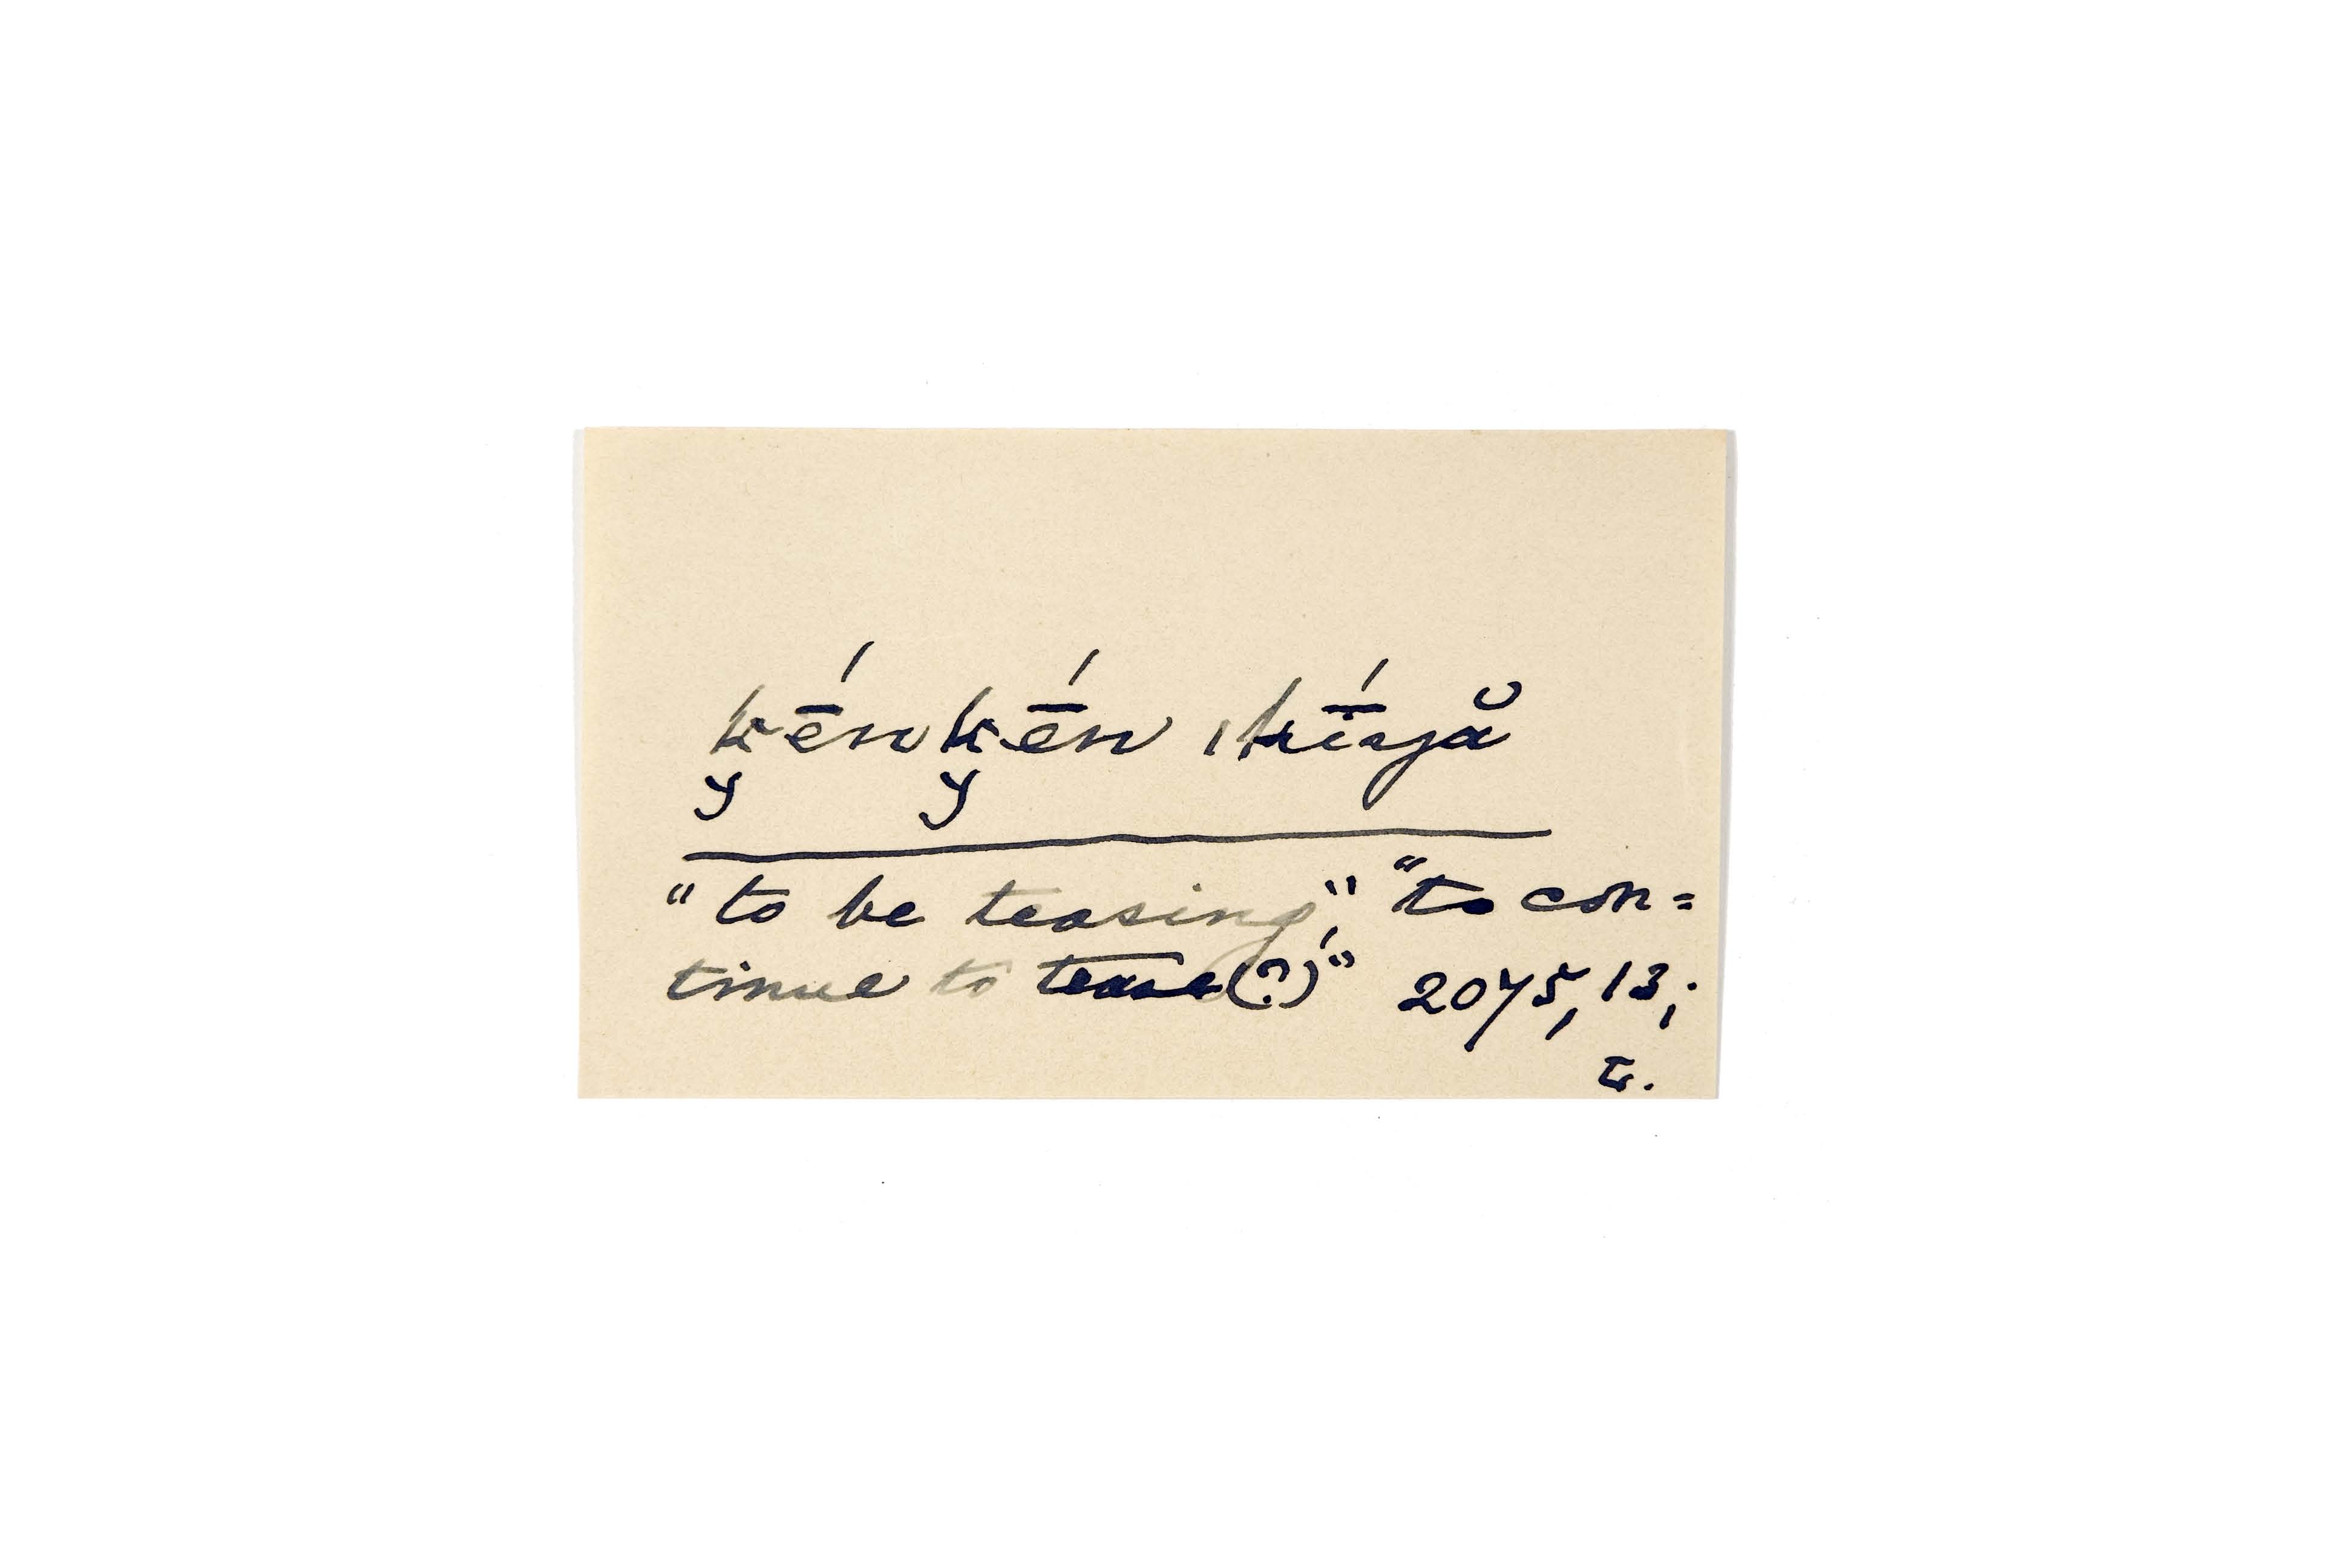 k̫ḗnk̫ḗn
"to be teasing", "to con=
tinue to tease(?)" 2075, 13;